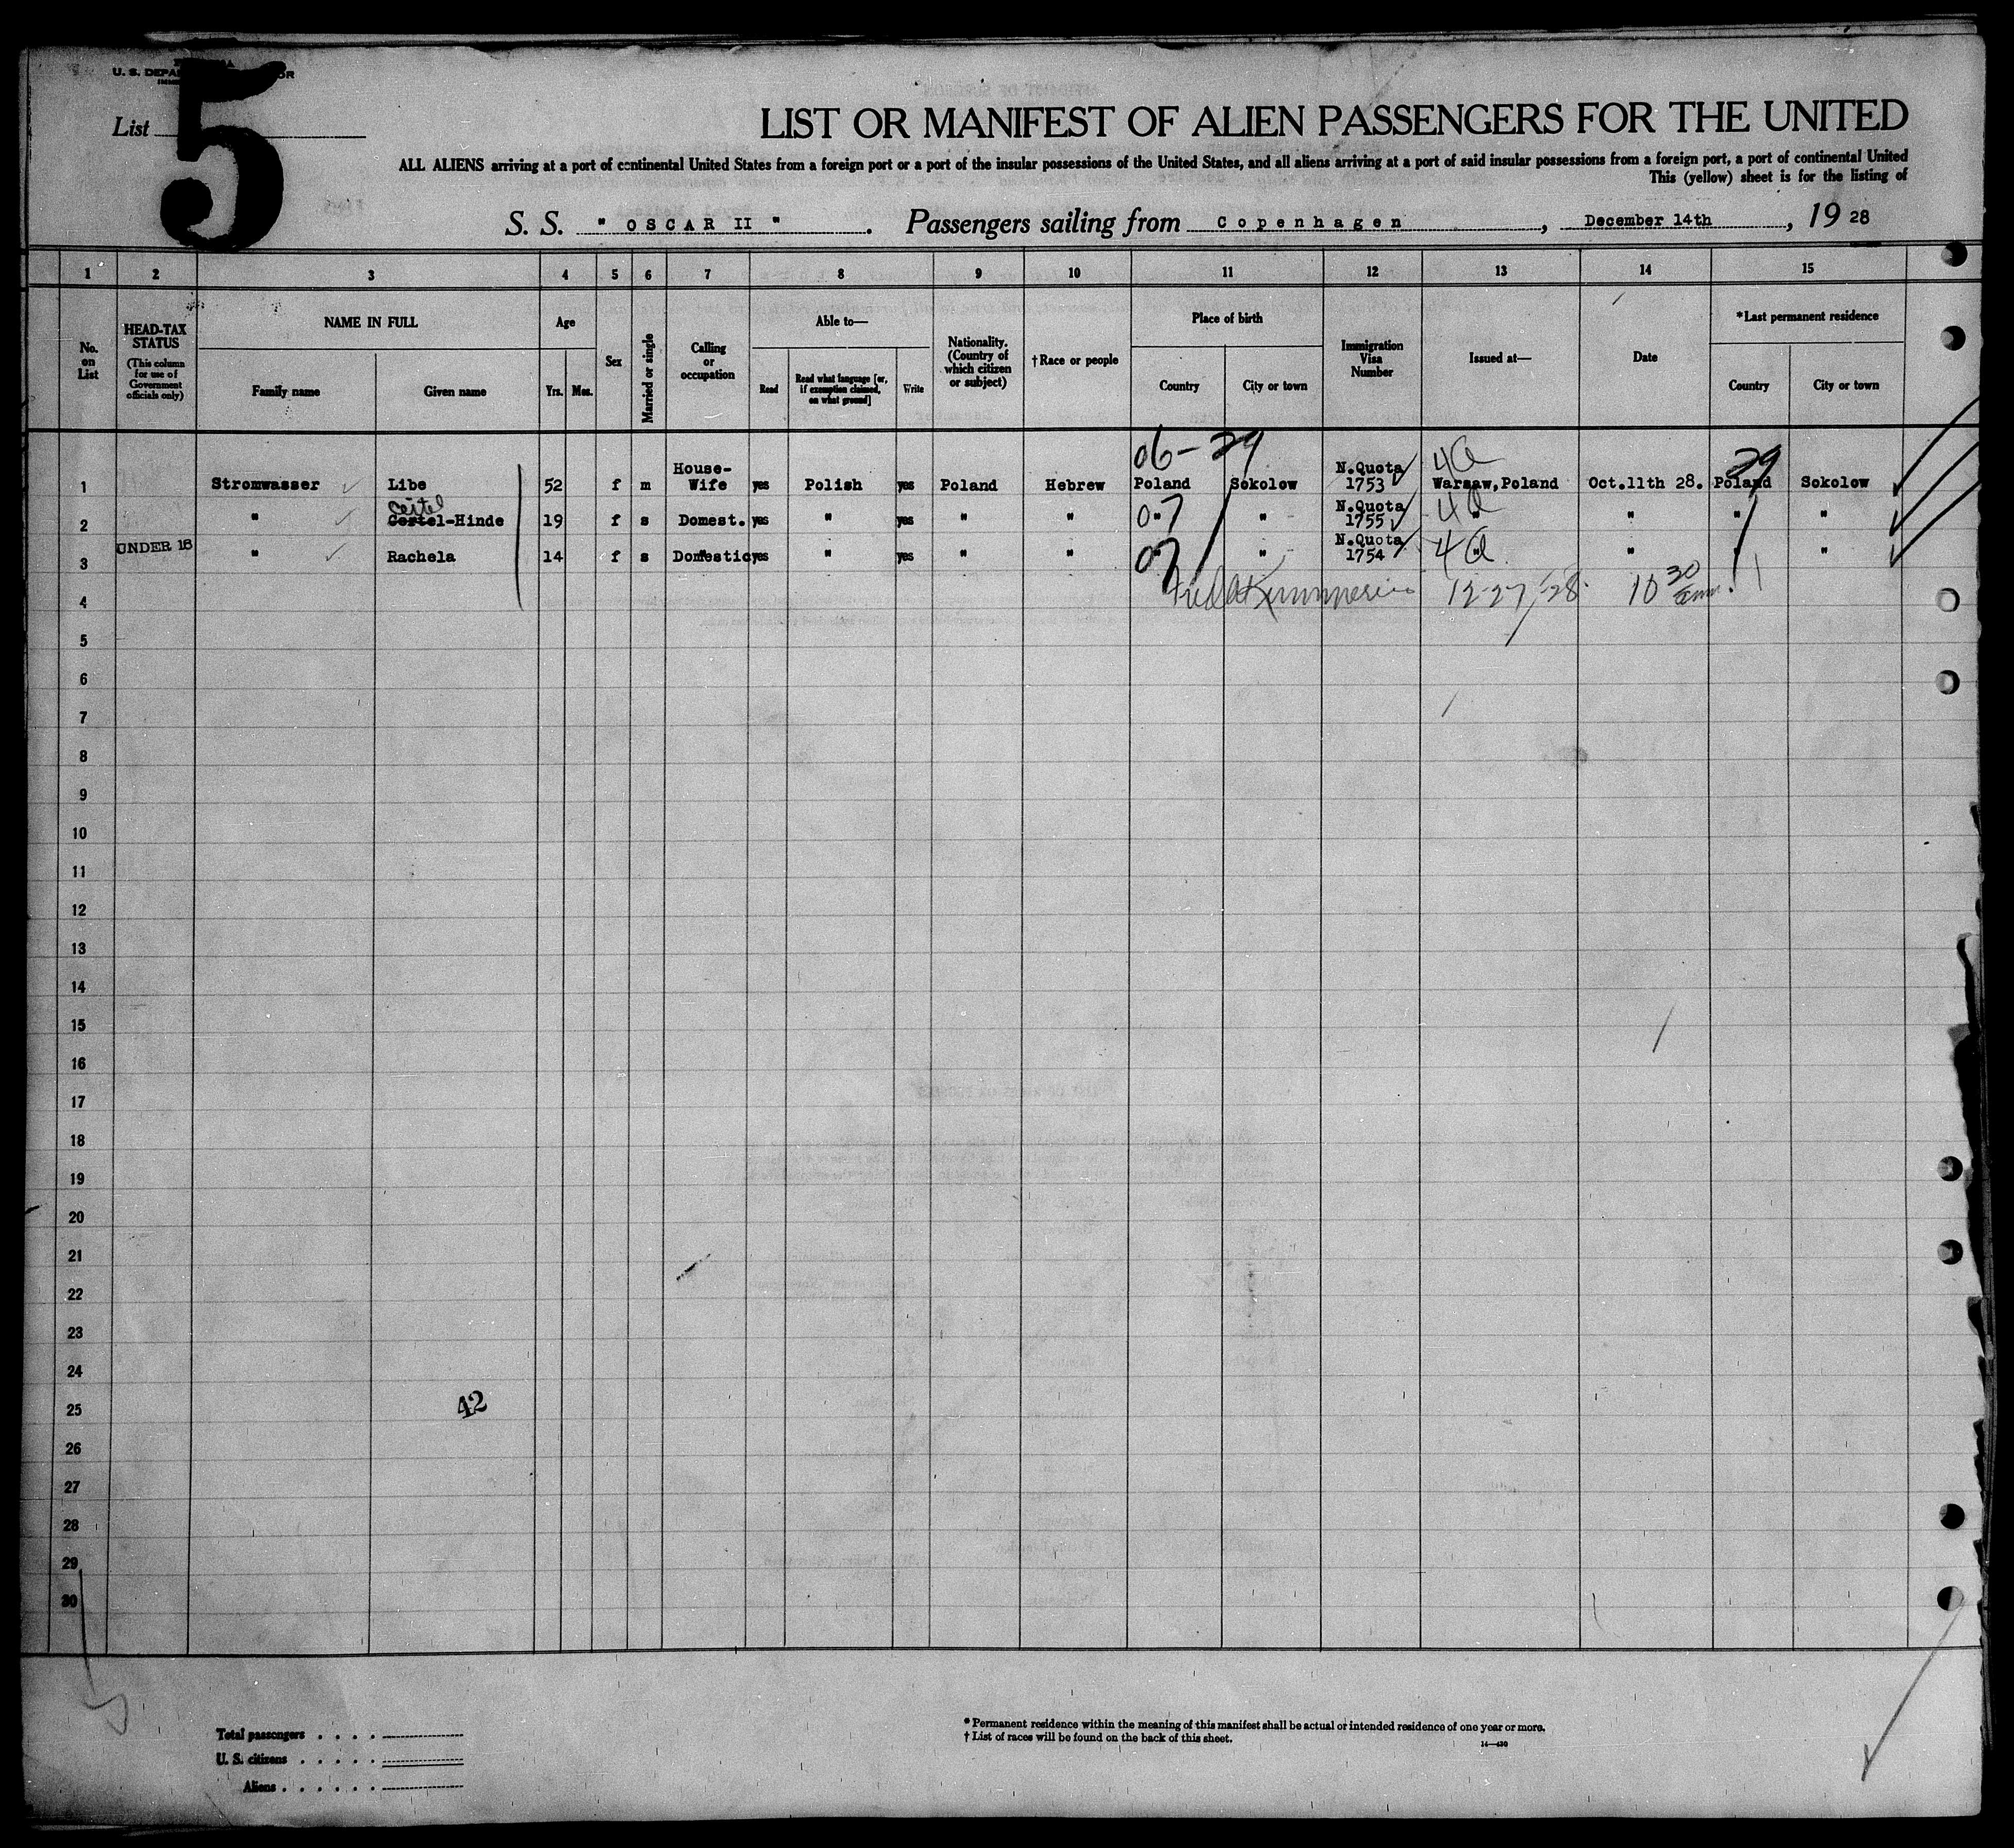 U. S. DEPA OR
5
List
LIST OR MANIFEST OF ALIEN PASSENGERS FOR THE UNITED
ALL ALIENS arriving at a port of continental United States from a foreign port or a port of the insular possessions of the United States, and all aliens arriving at a port of said insular possessions from a foreign port, a port of continental United
This (yellow) sheet is for the listing of
S. S. " OSCAR II " . Passengers sailing from Copenhagen , December 14th , 19 28
1 2 3 4 5 6 7 8 9 10 11 12 13 14 15
No. on List
HEAD-TAX STATUS
(This column for use of Government officials only)
NAME IN FULL
Family name
Given name
Age
Yrs. Mos.
Sex
Married or single
Calling or occupation
Able to—
Read
Read what language [or, if exemption claimed, on what ground]
Write
Nationality. (Country of which citizen or subject)
†Race or people
Place of birth
Country
City or town
Immigration Visa Number
Issued at—
Date
*Last permanent residence
Country
City or town
06- 29 4a 29
1 Stromwasser Libe 52 f m House-Wife yes Polish yes Poland Hebrew Poland Sokolow N.Quota 1753 Warsaw, Poland Oct.11th 28. Poland Sokolow
Ceitel
2 " -Hinde 19 f s Domest. yes " yes " " 07 " " N.Quota 1755 4a " " " "
3 UNDER 16 " Rachela 14 f s Domestic yes " yes " " 07 " " N.Quota 1754 4a " " " "
4 12-27-28 10 30 am.
5
6
7
8
9
10
11
12
13
14
15
16
17
18
19
20
21
22
23
24
25 42
26
27
28
29
30
Total passengers . . . . .
U. S. citizens . . . . .
Aliens . . . . . .
* Permanent residence within the meaning of this manifest shall be actual or intended residence of one year or more.
† List of races will be found on the back of this sheet.
14—430